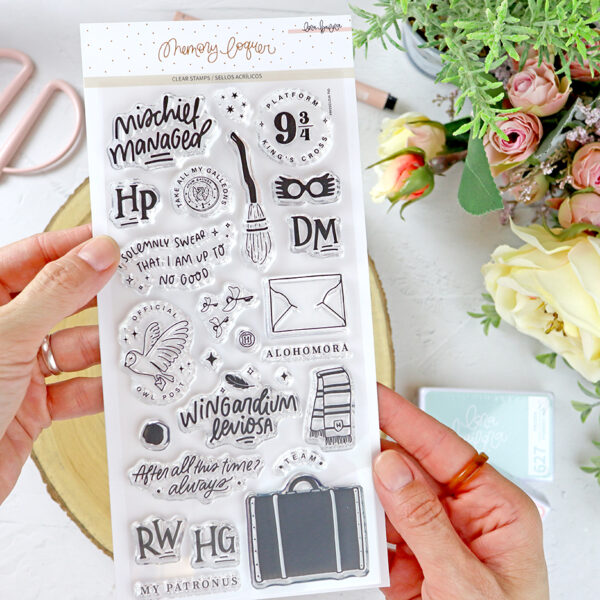 Memory Loquer
CLEAR STAMPS / SELLOS ACRÍLICOS
mischief
managed
PLATFORM
9 3/4
KING'S CROSS
Hp
TAKE ALL MY GALLEONS
DM
I SOLEMNLY SWEAR
THAT I AM UP TO
NO GOOD
OFFICIAL
OWL POST
H
ALOHOMORA
WINGARDIUM
leviosa
H
After all this time?
always
TEAM
RW
HG
MY PATRONUS
627